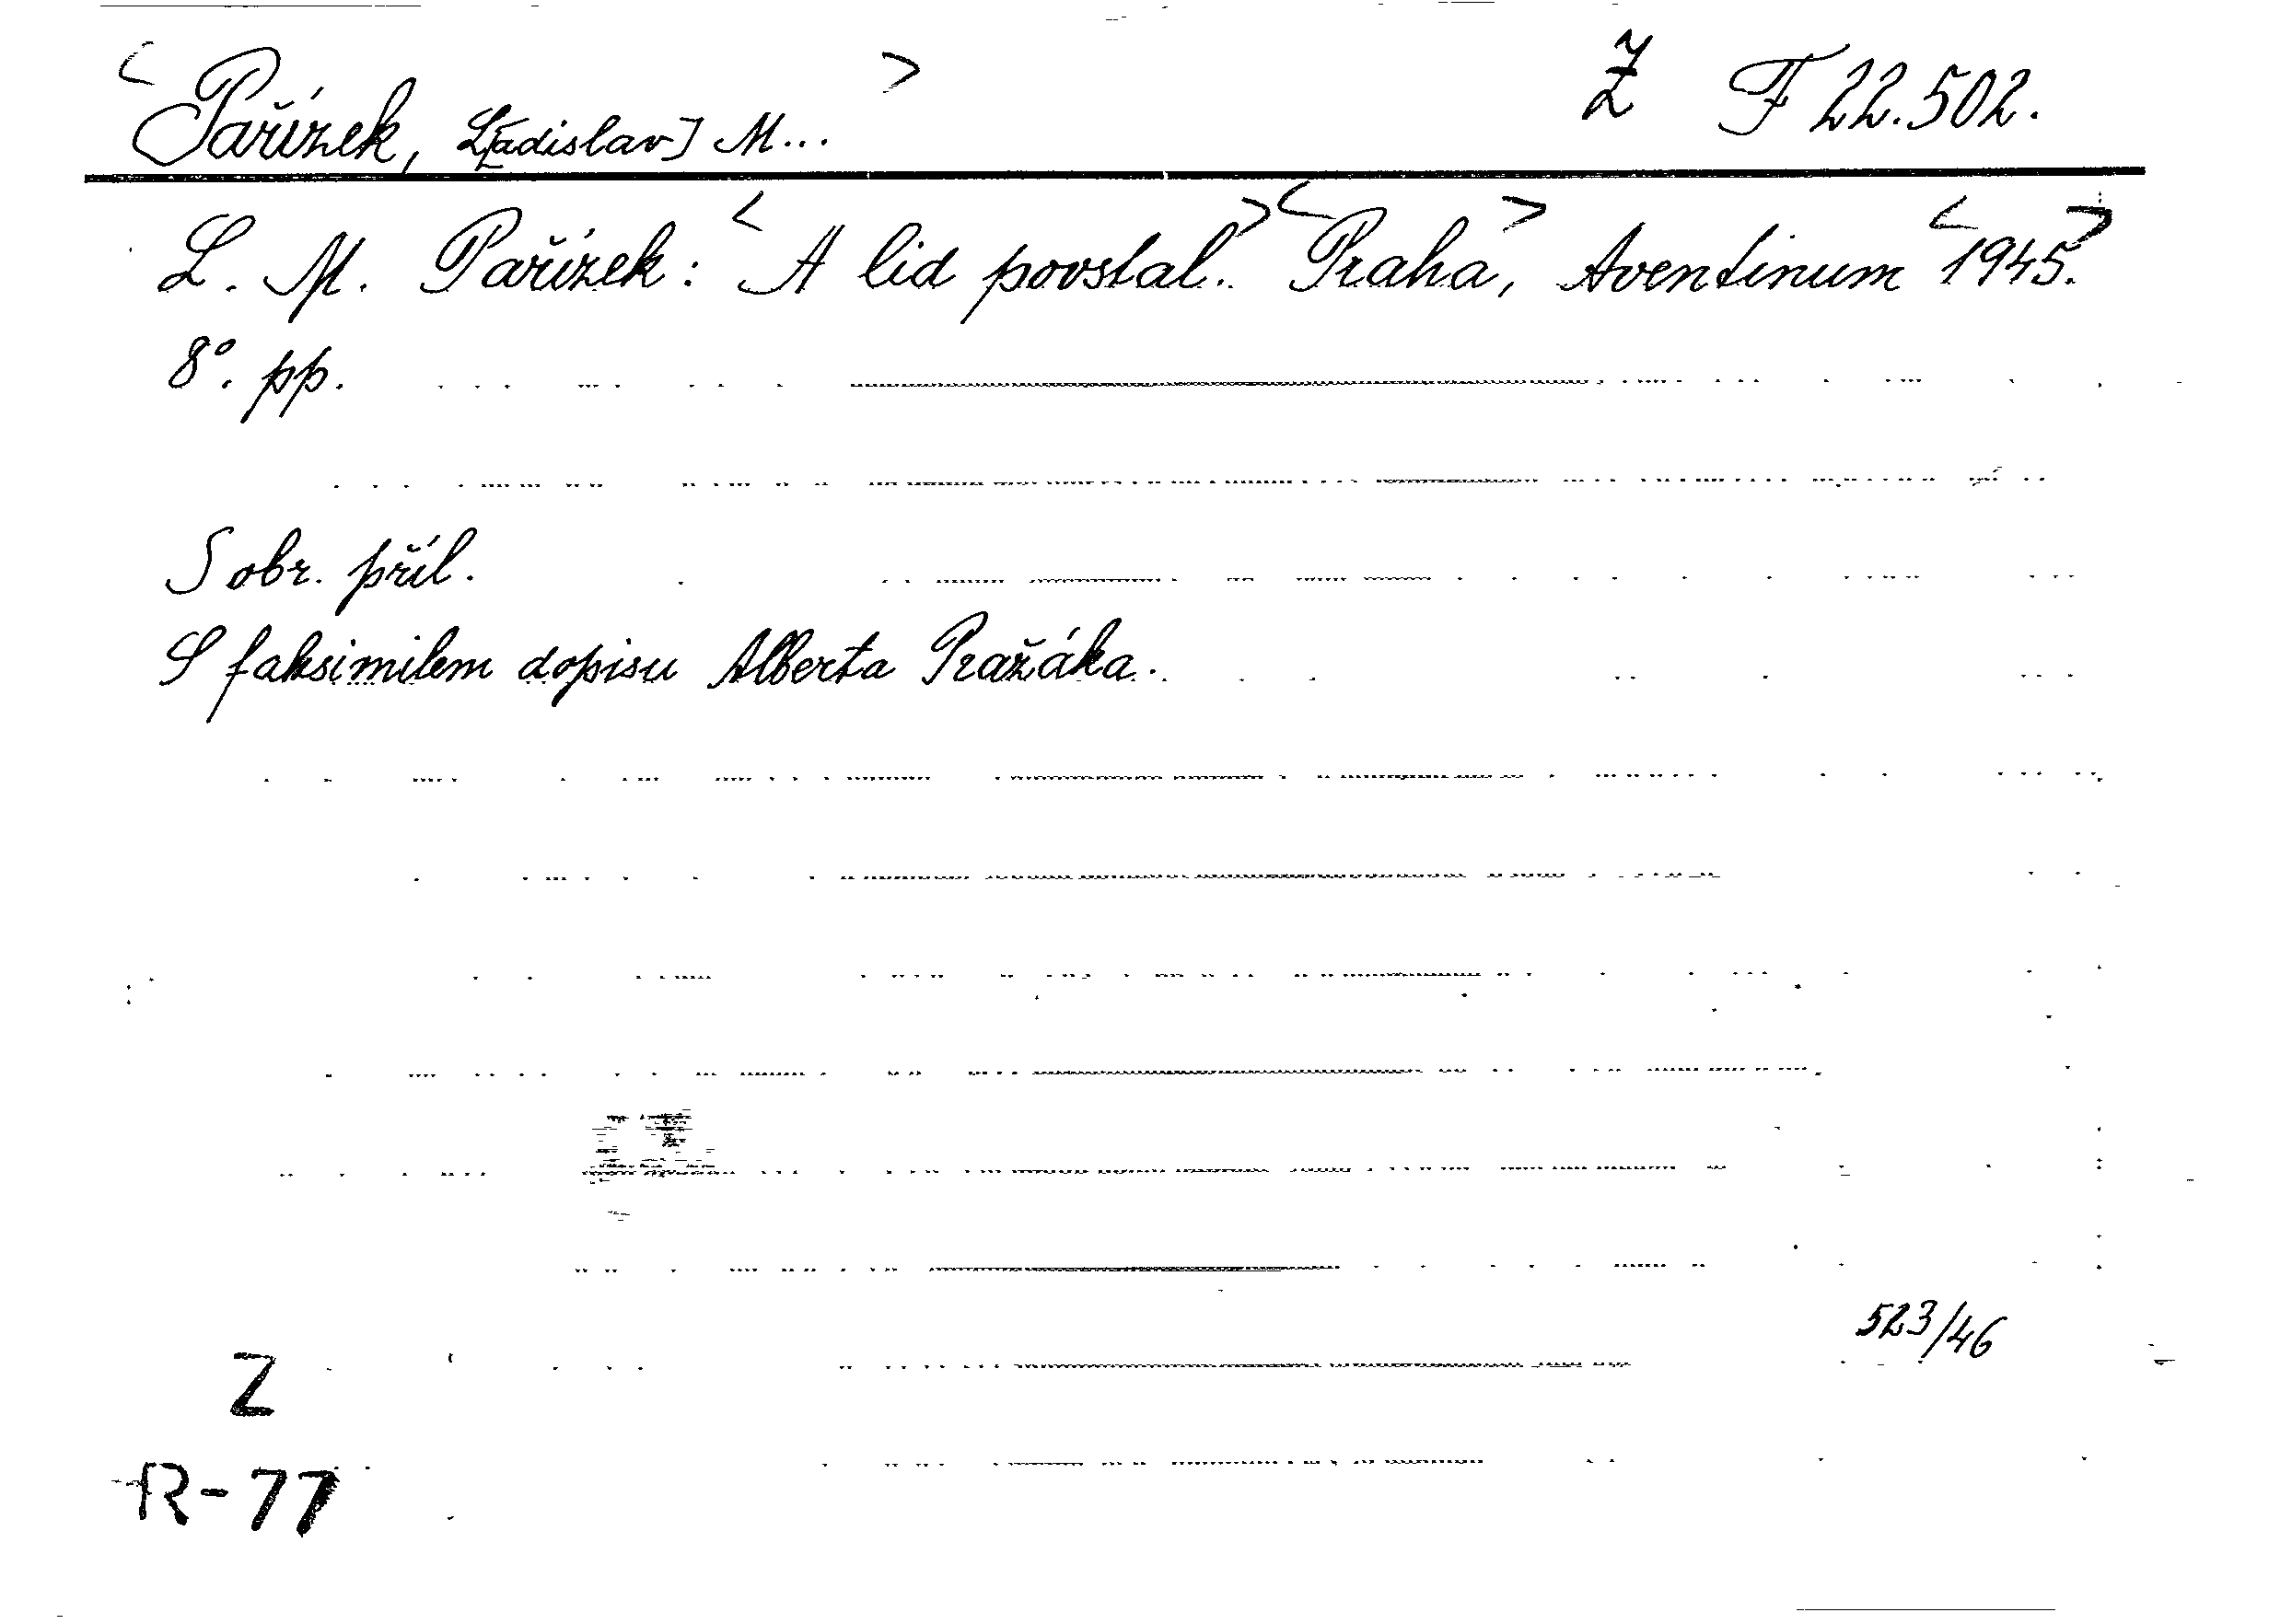 <Pařízek, L[adislav] M...> Z F 22.502.
L. M. Pařízek: <A lid povstal.> <Praha>, Aventinum <1945.>
8°. pp.
S obr. příl.
S faksimilem dopisu Alberta Pražáka.
523/46
Z
R-77